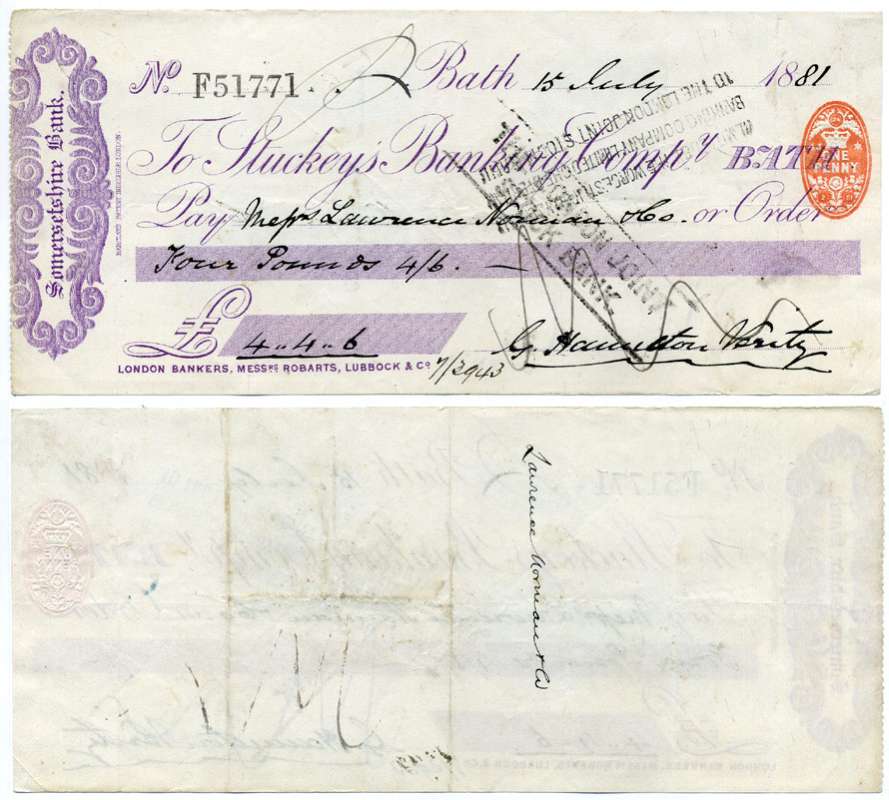 Somersetshire Bank.
No F51771. Bath 15 July 1881
To Stuckey's Banking Compy BATH
ONE PENNY
Pay Messrs Lawrence Norman & Co. or Order
Four Pounds 4/6. —
£ 4 „ 4 „ 6
G. Hamilton Verity
LONDON BANKERS, MESSRS ROBARTS, LUBBOCK & CO
BANKING COMPANY LIMITED
TO THE LONDON JOINT STOCK BANK
LONDON JOINT
STOCK BANK
Lawrence Norman & Co